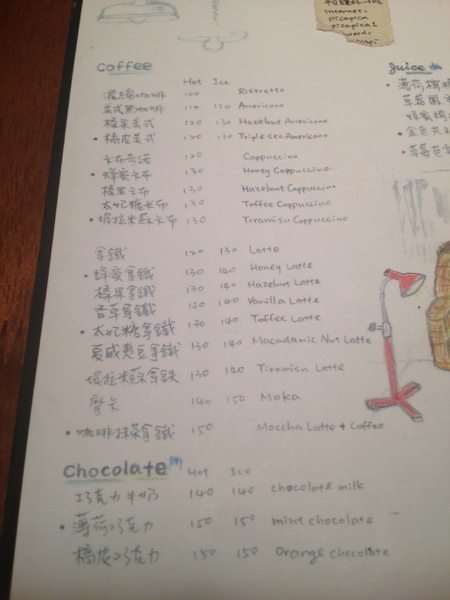 internet.
picapica
picapica1
word.
Coffee
Hot Ice
濃縮咖啡 100 Ristretto
美式黑咖啡 110 120 Americano
榛果美式 120 130 Hazelnut Americano
• 橘皮美式 120 130 Triple sec Americano
卡布奇諾 120 Cappuccino
• 蜂蜜卡布 130 Honey Cappuccino
榛果卡布 130 Hazelnut Cappuccino
太妃糖卡布 130 Toffee Cappuccino
• 堤拉米蘇卡布 130 Tiramisu Cappuccino
拿鐵 120 130 Latte
• 蜂蜜拿鐵 130 140 Honey Latte
榛果拿鐵 130 140 Hazelnut Latte
香草拿鐵 130 140 Vanilla Latte
• 太妃糖拿鐵 130 140 Toffee Latte
夏威夷豆拿鐵 130 140 Macadamic Nut Latte
堤拉米蘇拿鉄 130 140 Tiramisu Latte
摩卡 140 150 Moka
• 咖啡抹茶拿鐵 150 Moccha Latte + Coffee
Chocolate
Hot Ice
巧克力牛奶 140 140 chocolate milk
• 薄荷巧克力 150 150 mint chocolate
橘皮巧克力 150 150 Orange chocolate
Juice
• 薄荷檸
• 金色
• 草莓芭